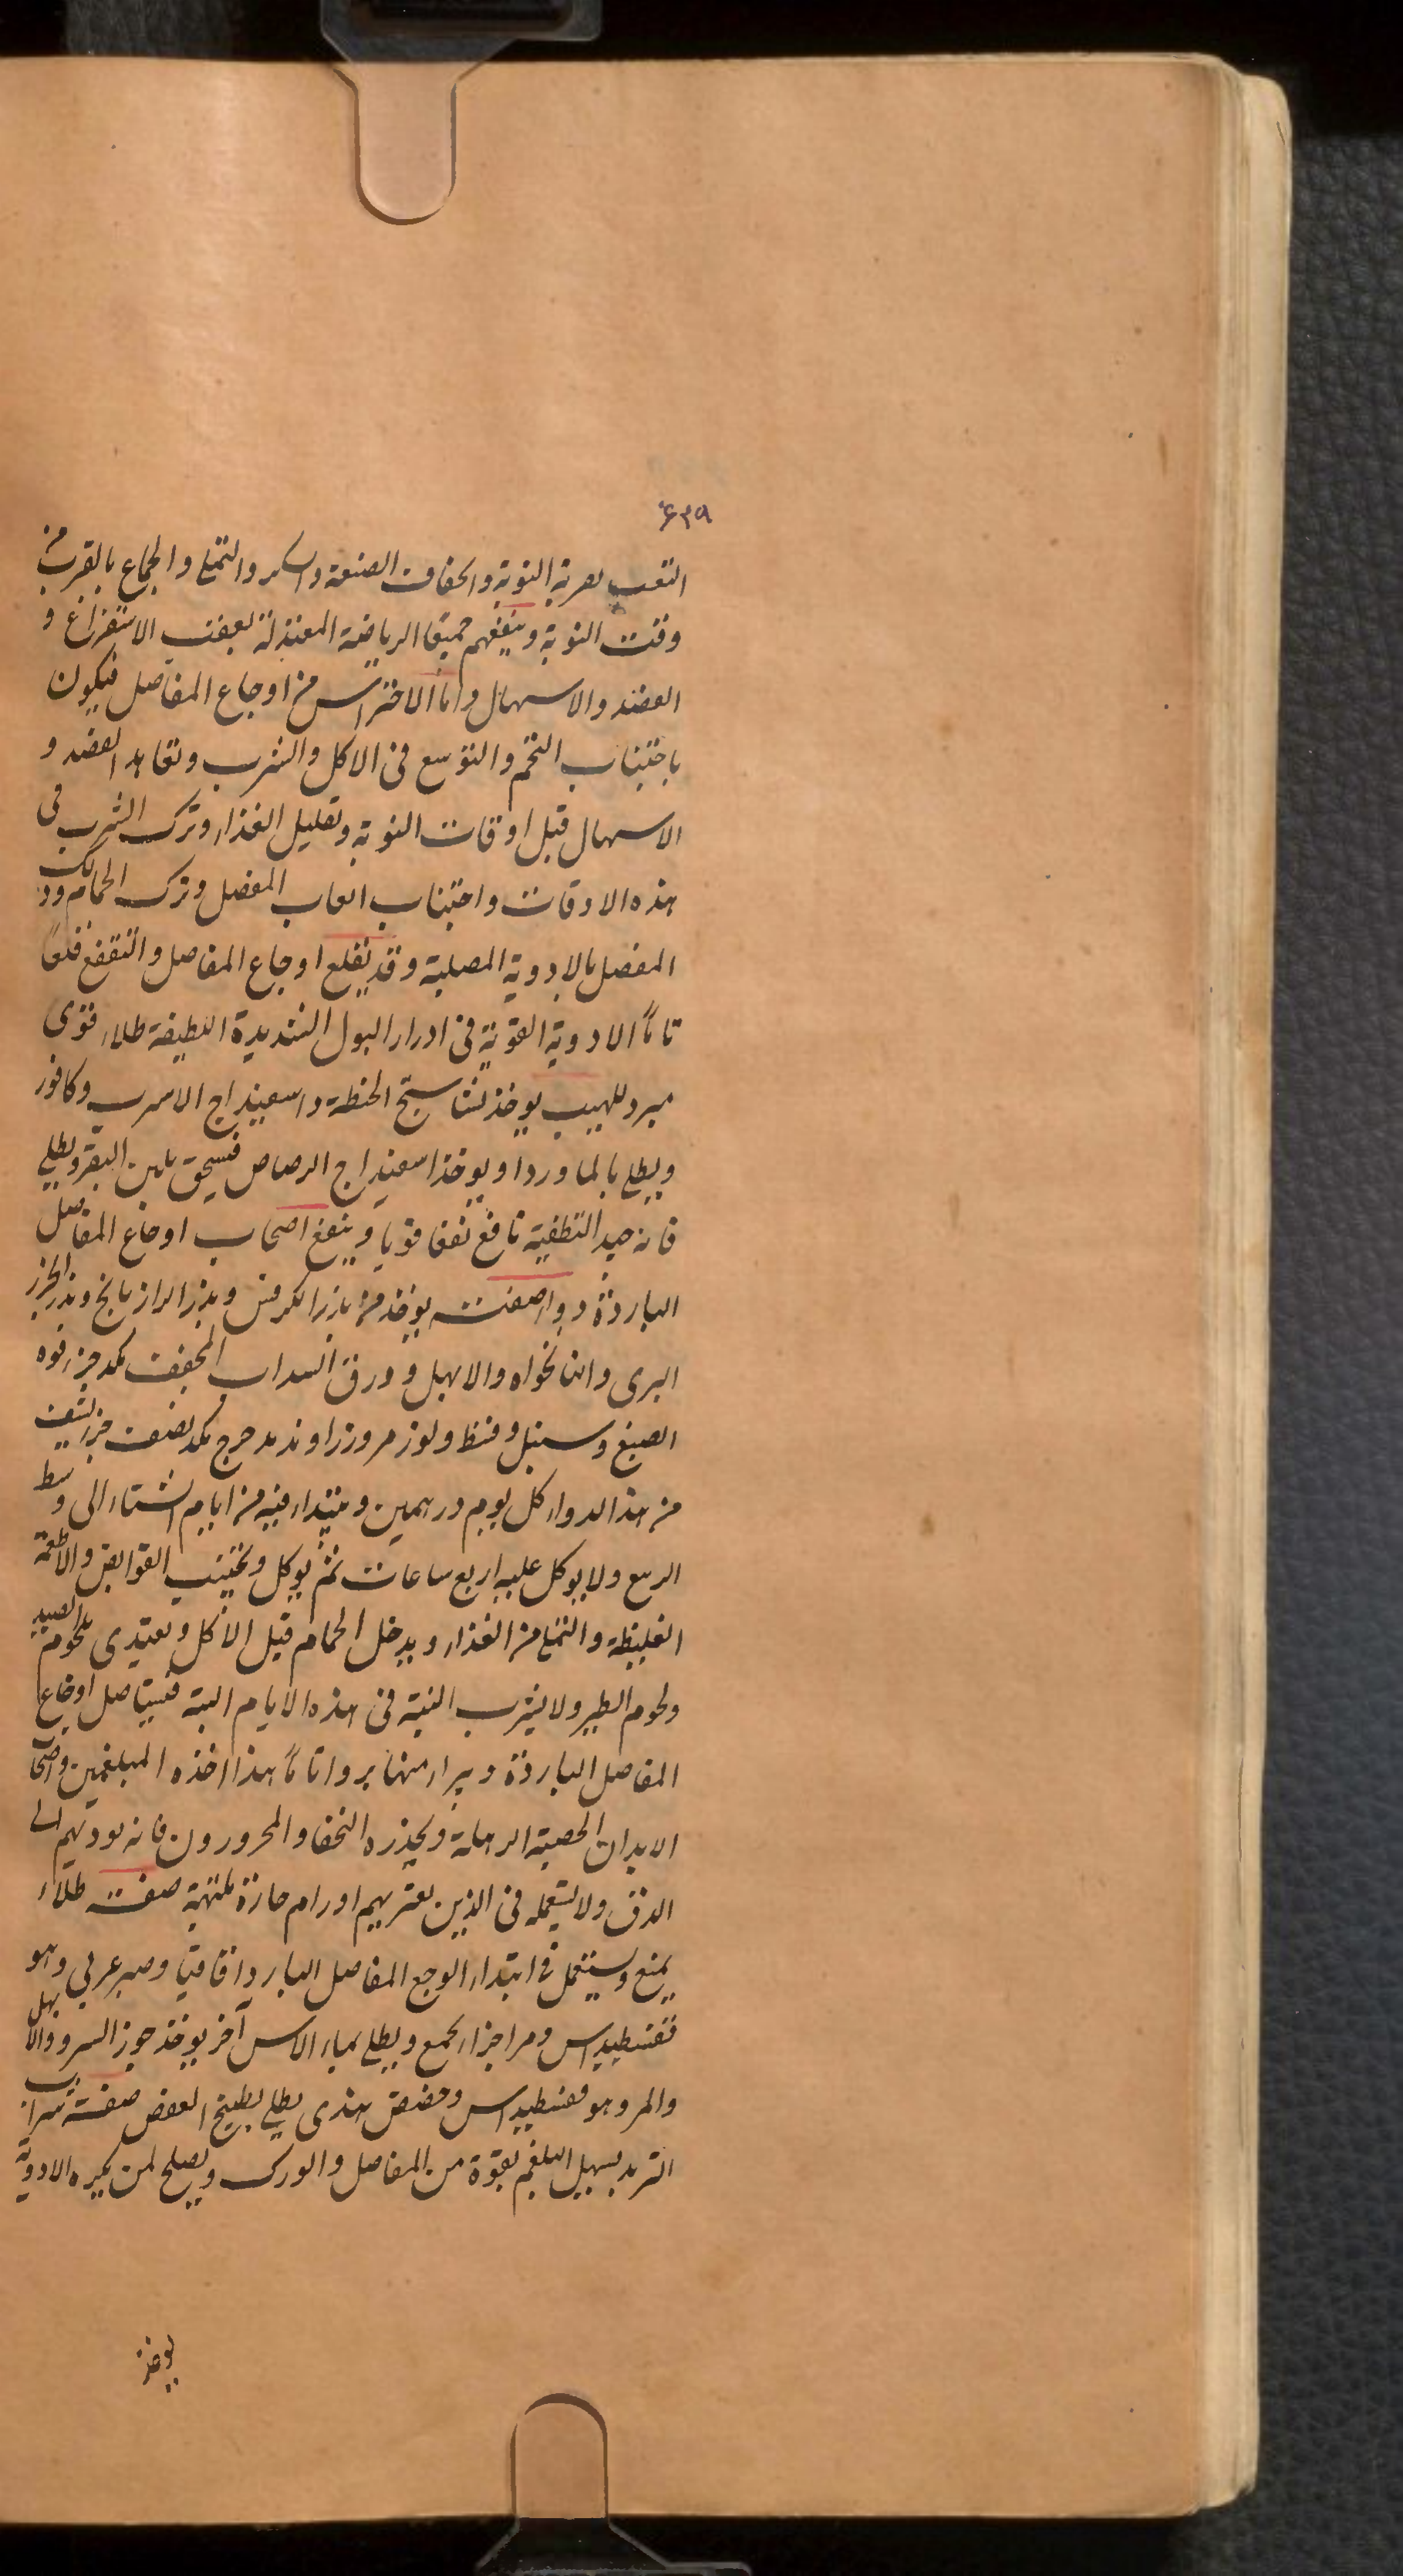 ۶۳۹
التعب بعربة النوبة والجفاف الصنعة والسكر والتملی والجماع بالقرب من
وقت النوبة وینفعهم جمیعا الریاضة المعتدلة بعقب الاستفراغ و
الفصد والاسهال واما الاحتراس من اوجاع المفاصل فیكون
باجتناب التخم والتوسع فی الاكل والشرب وتعاهد الفصد و
الاسهال قبل اوقات النوبة وتقلیل الغذاء وترك الشرب فی
هذه الاوقات واجتناب اتعاب المفصل وترك الحمام ودلك
المفصل بالادویة المصلبة وقد یقلع اوجاع المفاصل والنقرس قلعا
تاماً الادویة القویة فی ادرار البول الشدیدة اللطیفة طلاء قوی
مبرد للهیب یوخذ نشاستج الحنطة واسفیداج الاسرب وكافور
ویطلی بالماورد او یوخذ اسفیداج الرصاص فیسحق بلبن البقر ویطلی
فانه جید التطفیة نافع نفعا قویا وینفع اصحاب اوجاع المفاصل
الباردة دواء صفت یوخذ من بزر الكرفس وبذر الرازیانج وبذر الجزر
البری والنانخواه والابهل وورق السداب المجفف یكد جزء فوه
الصبغ وسنبل وقسط ولوز مر وزراوند مدحرج یكد نصف جزء یشف
من هذا الدواء كل یوم درهمین ویبتداء فیه من ایام الشتاء الی وسط
الربیع ولا یوكل علیه اربع ساعات ثم یوكل ویجتنب القوابض والاطعمة
الغلیظة والتملی من الغذاء ویدخل الحمام قبل الاكل ویغتذی بلحوم الصید
ولحوم الطیر ولا یشرب النبیذ فی هذه الایام البتة فیستاصل اوجاع
المفاصل الباردة ویبراء منها برواً تاماً هذا اخذه المبلغمین واصحاب
الابدان الخصبة الرهلة ویحذره النحفا والمحرورون فانه یودیهم الی
الدق ولا یستعمله فی الذین یعتریهم اورام حارة ملتهبة صفت طلاء
یمنع ویستعمل فی ابتداء الوجع المفاصل البارد اقاقیا وصبر عربی وهو
فقسطیداس ومر اجزاء یجمع ویطلی بماء الاس آخر یوخذ جوز السرو والابهل
والمر وهو فقسطیداس وحضض هندی یطلی بطبیخ العفص صفة شراب
التربد یسهل البلغم بقوة من المفاصل والورك ویصلح لمن یكره الادویة
یوخذ